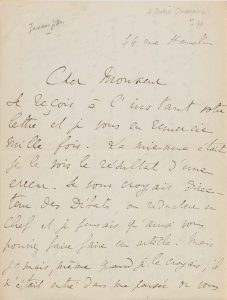 44 rue Hamelin
Cher Monsieur
Je reçois à l'instant votre
lettre et je vous en remercie
mille fois. La mienne était
je le vois le résultat d'une
erreur. Je vous croyais Direc
teur des Débats ou rédacteur en
chef et je pensais qu'ainsi vous
pourriez faire faire un article. Mais
jamais, même quand je le croyais, il
n'était entré dans ma pensée de vous